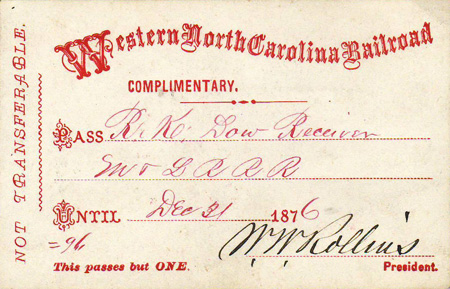 Western North Carolina Railroad
COMPLIMENTARY.
NOT TRANSFERABLE.
PASS R. K. Dow Receiver
R R R
UNTIL Dec 31 1876
=96
W W Rollins
This passes but ONE. President.